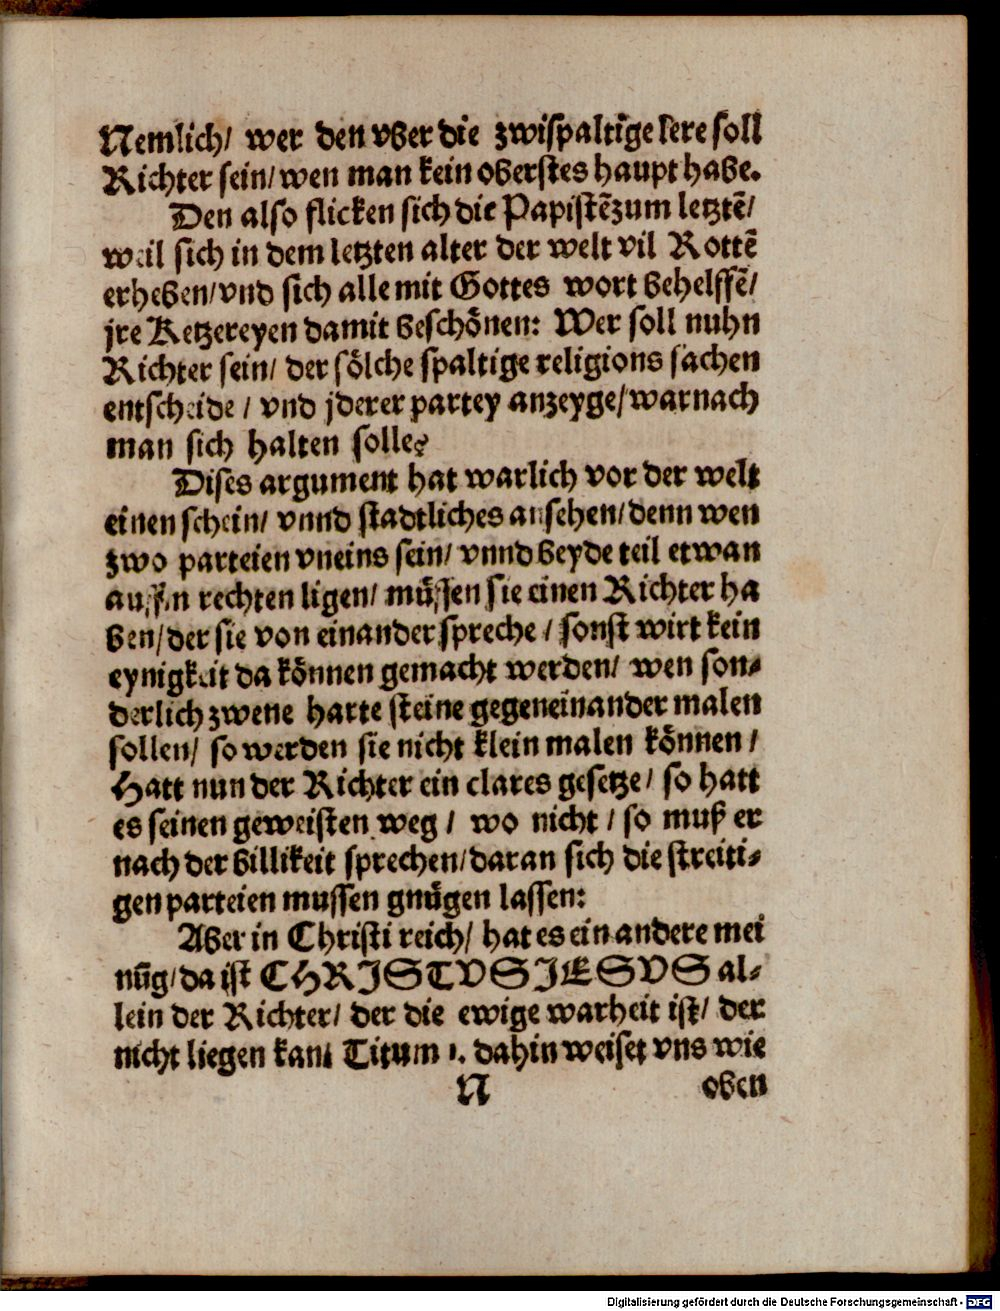 Nemlich/ wer den vber die zwispaltige lere soll
Richter sein/ wen man kein oberstes haupt habe.
Den also flicken sich die Papistẽ zum letztẽ/
weil sich in dem letzten alter der welt vil Rottẽ
erheben/ vnd sich alle mit Gottes wort behelffẽ/
jre Ketzereyen damit beschönen: Wer soll nuhn
Richter sein/ der sölche spaltige religions sachen
entscheide / vnd jderer partey anzeyge/ warnach
man sich halten solle?
Dises argument hat warlich vor der welt
einen schein/ vnnd stadtliches ansehen/ denn wen
zwo parteien vneins sein/ vnnd beyde teil etwan
aussen rechten ligen/ müssen sie einen Richter ha
ben/ der sie von einander spreche / sonst wirt kein
eynigkeit da können gemacht werden/ wen son-
derlich zwene harte steine gegeneinander malen
sollen/ so werden sie nicht klein malen können /
Hatt nun der Richter ein clares gesetze/ so hatt
es seinen geweisten weg / wo nicht / so muß er
nach der billikeit sprechen/ daran sich die streiti-
gen parteien mussen gnügen lassen:
Aber in Christi reich/ hat es ein andere mei
nũg/ da ist CHRISTVS IESVS al-
lein der Richter/ der die ewige warheit ist/ der
nicht liegen kan/ Titum 1. dahin weiset vns wie
N oben
Digitalisierung gefördert durch die Deutsche Forschungsgemeinschaft - DFG